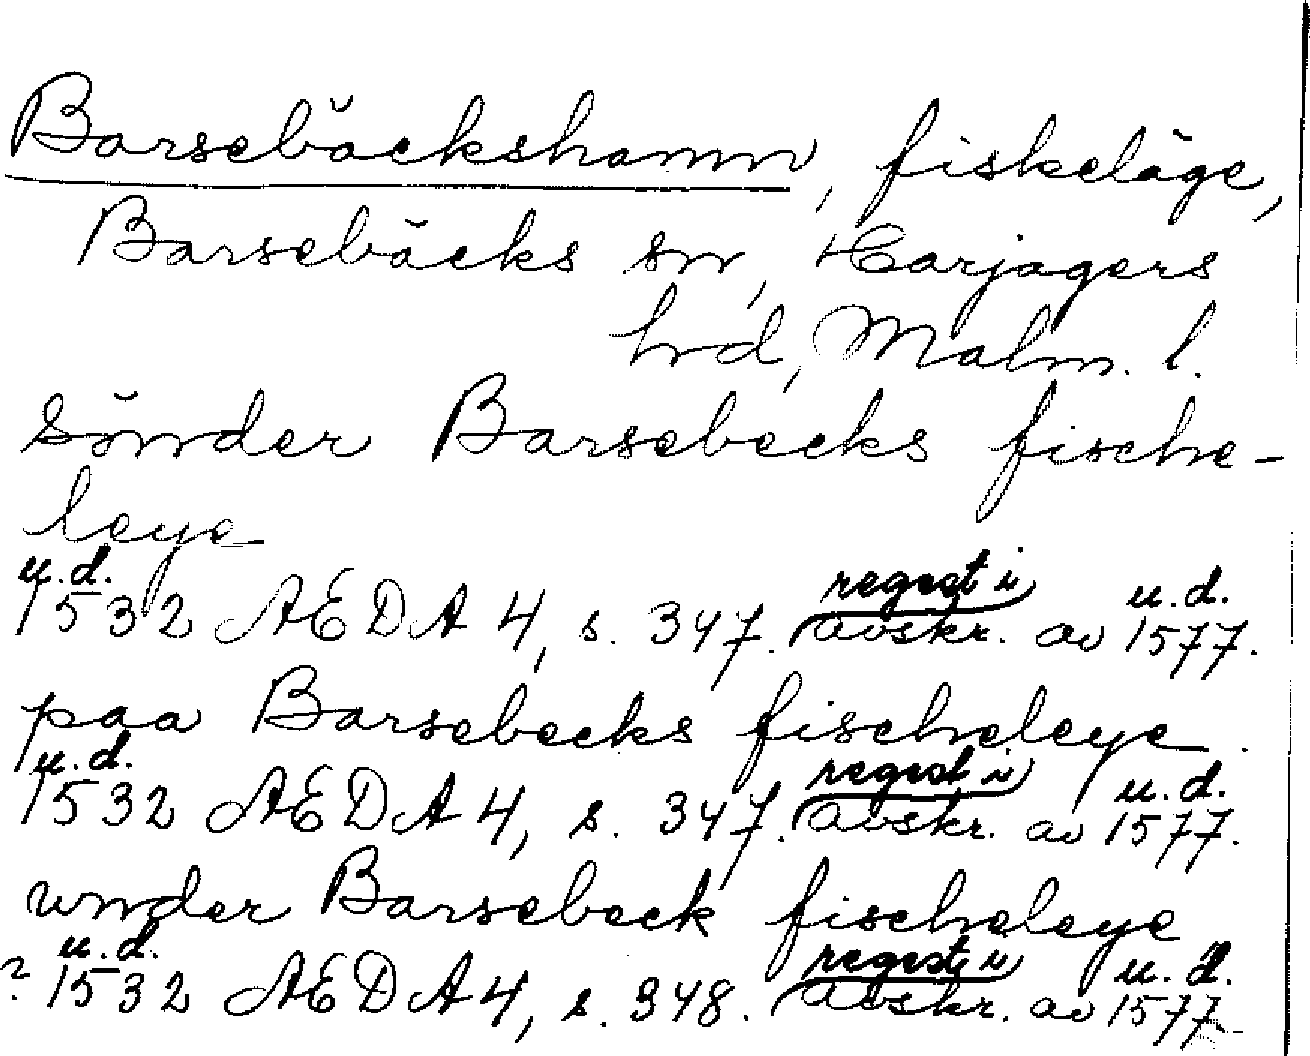 Barsebäckshamn, fiskeläge,
Barsebäcks sn, Harjagers
hrd, Malm. l.
sönder Barsebecks fische-
leye
u.d.
1532 ÆDA 4, s. 347. regest i avskr. av u.d. 1577.
paa Barsebecks fischeleye
u.d.
1532 ÆDA 4, s. 347. regest i avskr. av u.d. 1577.
vnder Barsebeck fischeleye
u.d.
? 1532 ÆDA 4, s. 348. regest i avskr. av u.d. 1577.